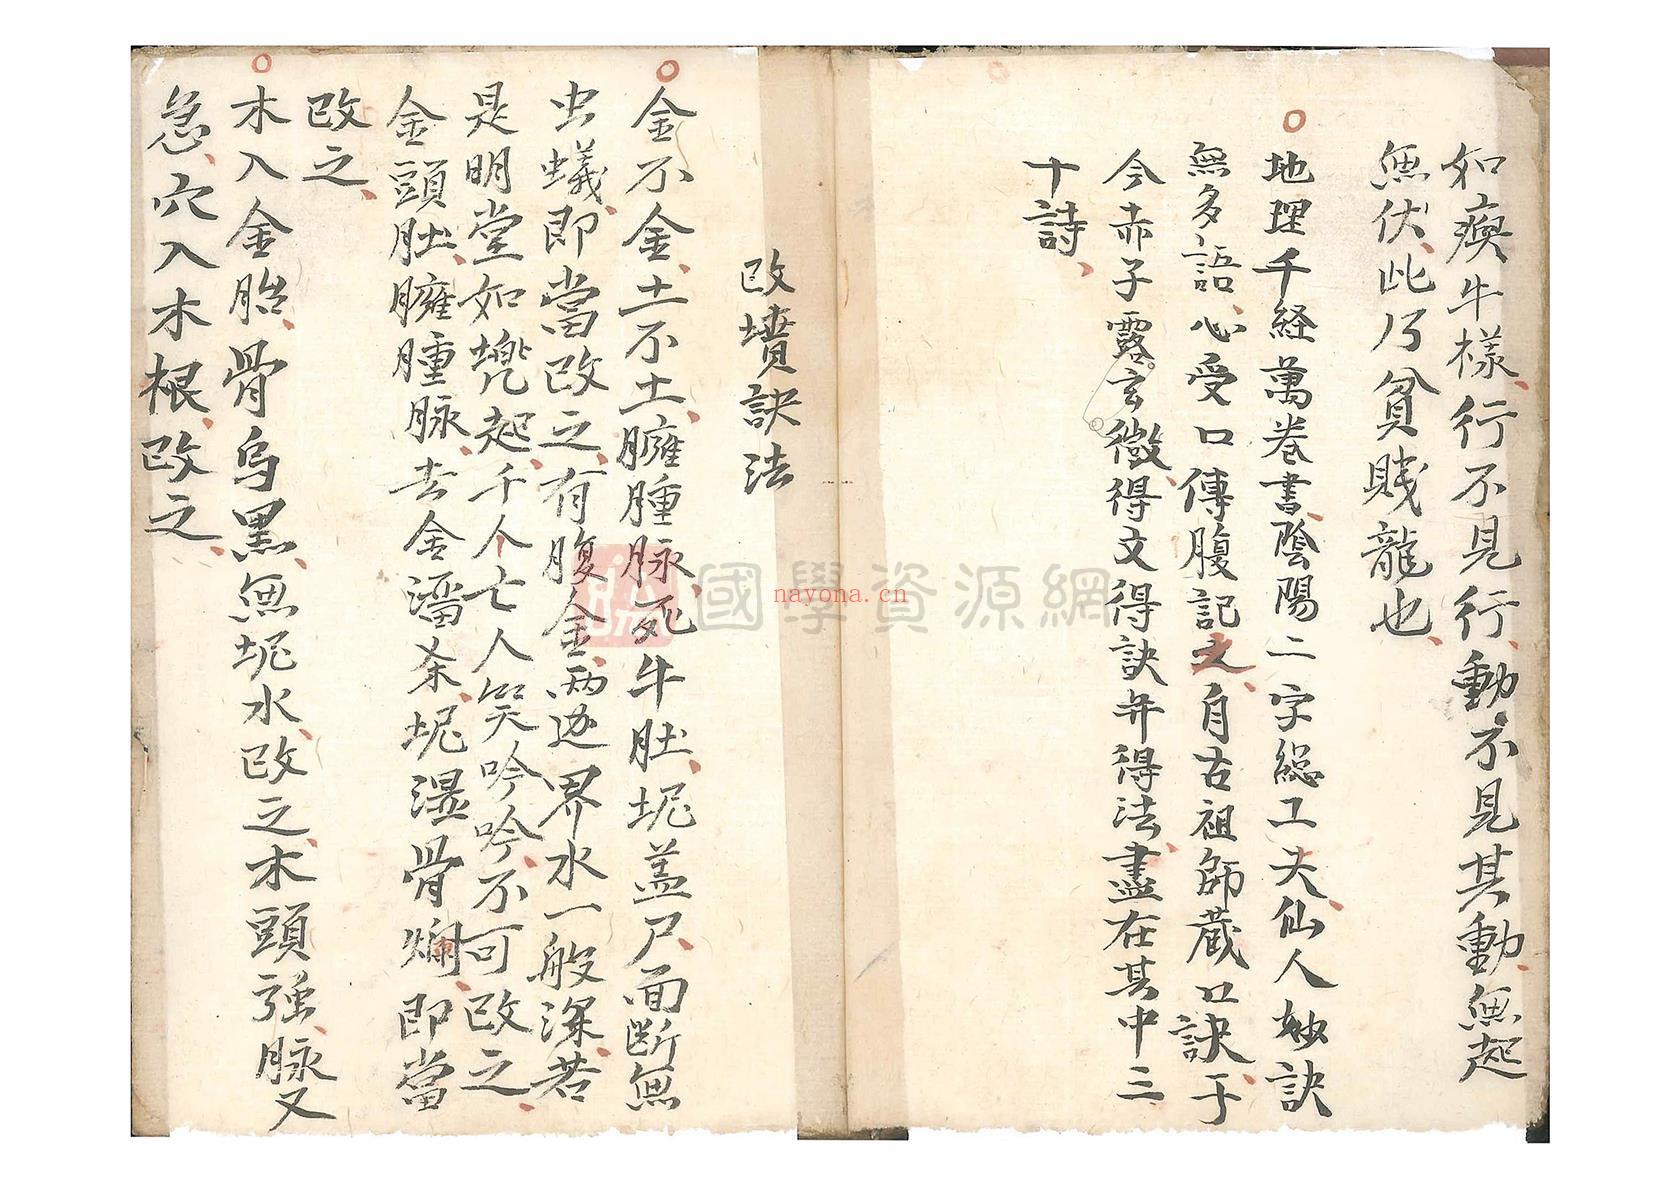 如瘼牛樣、行不見行、動不見其動、無起
無伏、此乃貧賤龍也、
地理千経萬卷書、陰陽二字總工夫、仙人妙訣
無多語、心受口傳腹記之、自古祖師藏口訣、于
今赤子露玄微、得文得訣并得法、盡在其中三
十詩、
改墳訣法
金不金、土不土、臃腫脉、死牛肚、坭盖尸、面断無
虫蟻、即當改之、有腹金、两边界水一般深、若
是明堂如㙮起、千人亡人笑吟吟、不可改之、
金頭肚、臃腫脉、去金濇条、坭濕骨爛、即當
改之、
木入金胎、骨烏黑、無坭水、改之、木頭强、脉又
急、穴入木根、改之、
國學資源網
nayona.cn